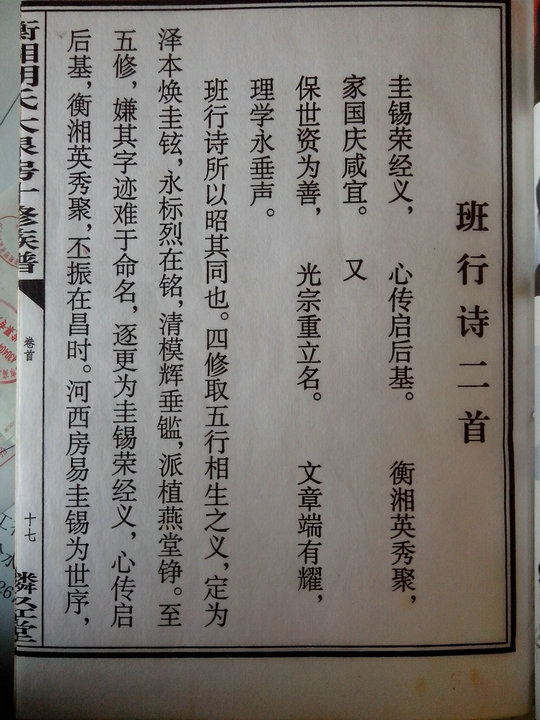 班行诗二首
圭锡荣经义， 心传启后基。 衡湘英秀聚，
家国庆咸宜。 又
保世资为善， 光宗重立名。 文章端有耀，
理学永垂声。
班行诗所以昭其同也。四修取五行相生之义，定为
泽本焕圭铉，永标烈在铭，清模辉垂鉴，派植燕堂铮。至
五修，嫌其字迹难于命名，逐更为圭锡荣经义，心传启
后基，衡湘英秀聚，丕振在昌时。河西房易圭锡为世序，
卷首
十七